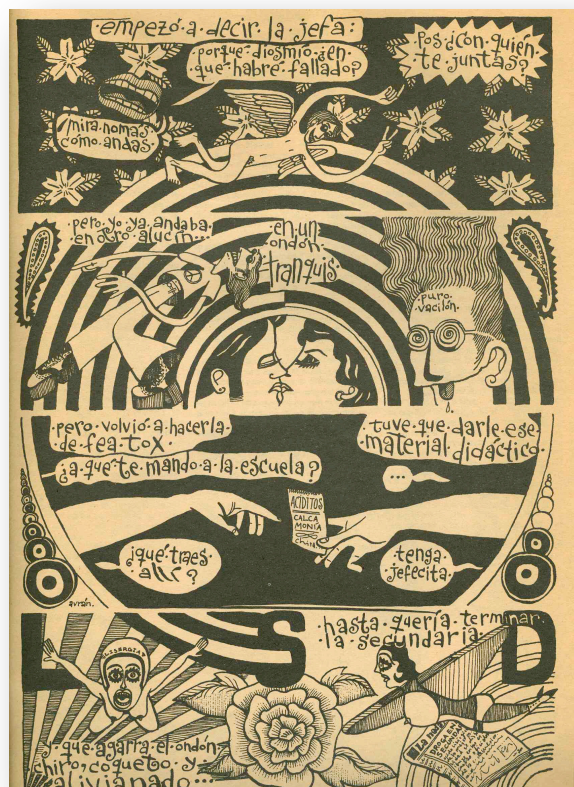 empezó·a·decir·la·jefa:
porque·diosmío·¿en·
·que·habré·fallado?
·pos·¿con·quién·
te·juntas?
¡mira·nomás·
cómo·andas·
·pero·yo·ya·andaba·
en·otro·alucín···
·en·un·
ondón·
tranquis·
·puro·
·vacilón·
·pero·volvió·a·hacerla·
de·fea·tox·
¿a·que·te·mando·a·la·escuela?
tuve·que·darle·ese·
material·didáctico·
...
ACIDITOS
CALCA
MONÍA
¿qué·traes·
allí?
·tenga·
jefecita·
avrán.
L S D
·hasta·quería·terminar·
·la·secundaria·
·y·que·agarra·el·ondón·
chiro,·coqueto·y·
alivianado···